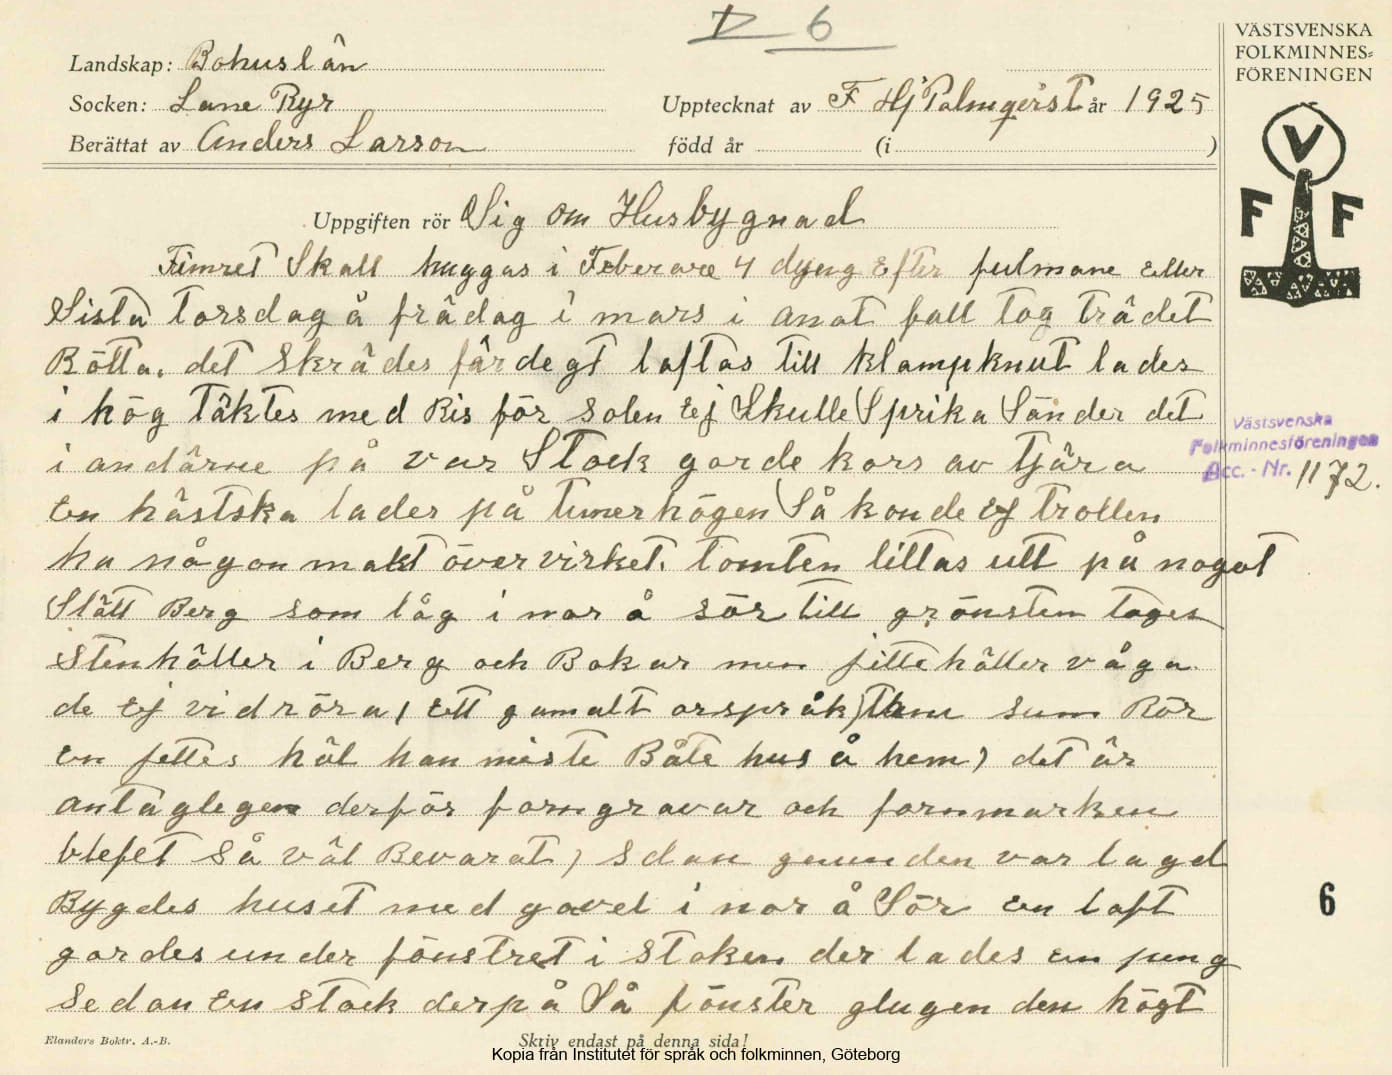 D 6
Landskap: Bohuslän
Socken: Lane Ryr
Upptecknat av F Hj Palmqvist år 1925
Berättat av Anders Larson
född år (i )
VÄSTSVENSKA
FOLKMINNES=
FÖRENINGEN
V
F F
Uppgiften rör Sig om Husbygnad
Timret Skall huggas i Feberare 4 dyng Efter fulmane eller
Sista torsdag å frädag i mars i anat fall tog trädet
Rötta. det Skrädes färdegt laftas till klampknut lades
i hög täktes med Ris för solen Ej Skulle Sprika Sänder det
i andärne på var Stock gorde kors av tjära
En hästska lades på timerhögen Så konde Ej trollen
ha någon makt över virket. tomten littas utt på nogot
Slätt Berg som låg i nor å sör till grönsten toges
Stenhäller i Berg och Bokar men jittehäller våga
de Ej vidröra ( Ett gamalt orspråk) som Rör
En jettes häl han miste Båte hus å hem) det är
antaglegen derför forngravar och fornmarken
blefet så väl Bevarat) sdan grunden var lagd
Bygdes huset med gavel i nor å Sör En laft
gordes under fönstret i stoken der lades en pung
sedan En stock derpå Så fönster glugen den högt
Västsvenska
Folkminnesföreningen
Acc. - Nr. 1172.
6
Elanders Boktr. A.-B.
Skriv endast på denna sida!
Kopia från Institutet för språk och folkminnen, Göteborg